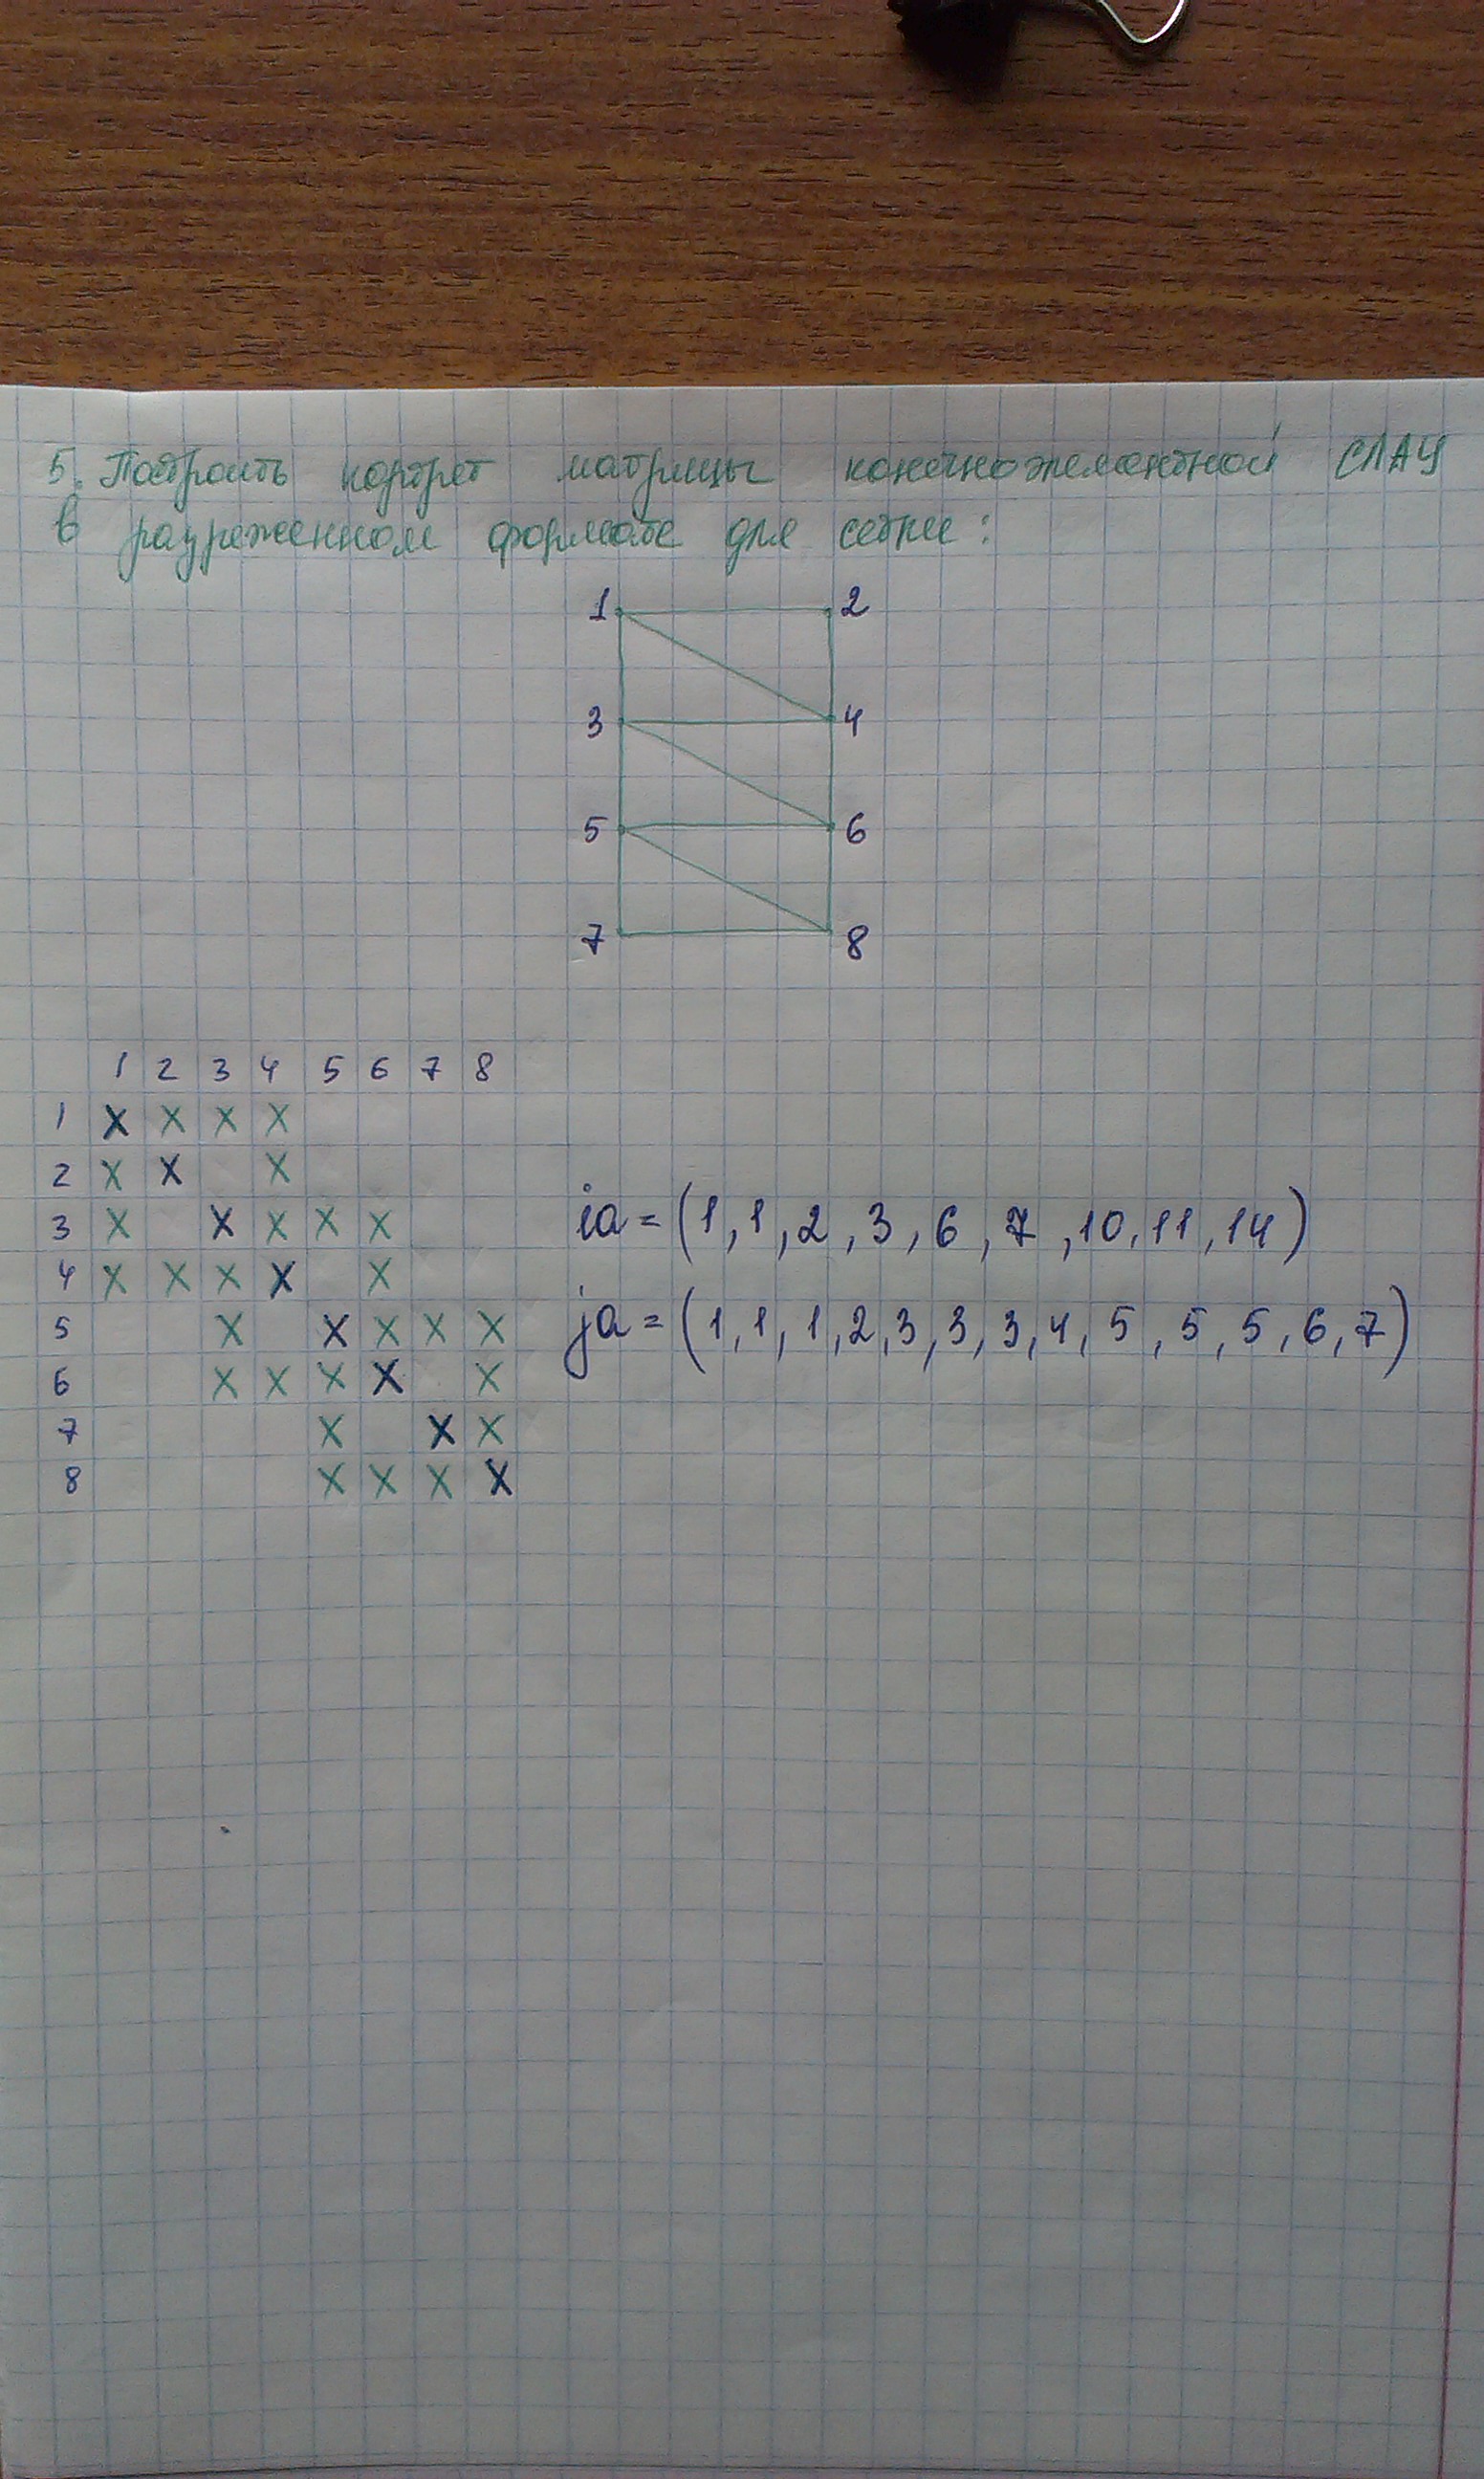 5. Построить портрет матрицы конечноэлементной СЛАУ
в разреженном формате для сетки:
1 2
3 4
5 6
7 8
1 2 3 4 5 6 7 8
1 X X X X
2 X X X
3 X X X X X
4 X X X X X
5 X X X X X
6 X X X X X
7 X X X
8 X X X X
ia = (1,1,2,3,6,7,10,11,14)
ja = (1,1,1,2,3,3,3,4,5,5,5,6,7)